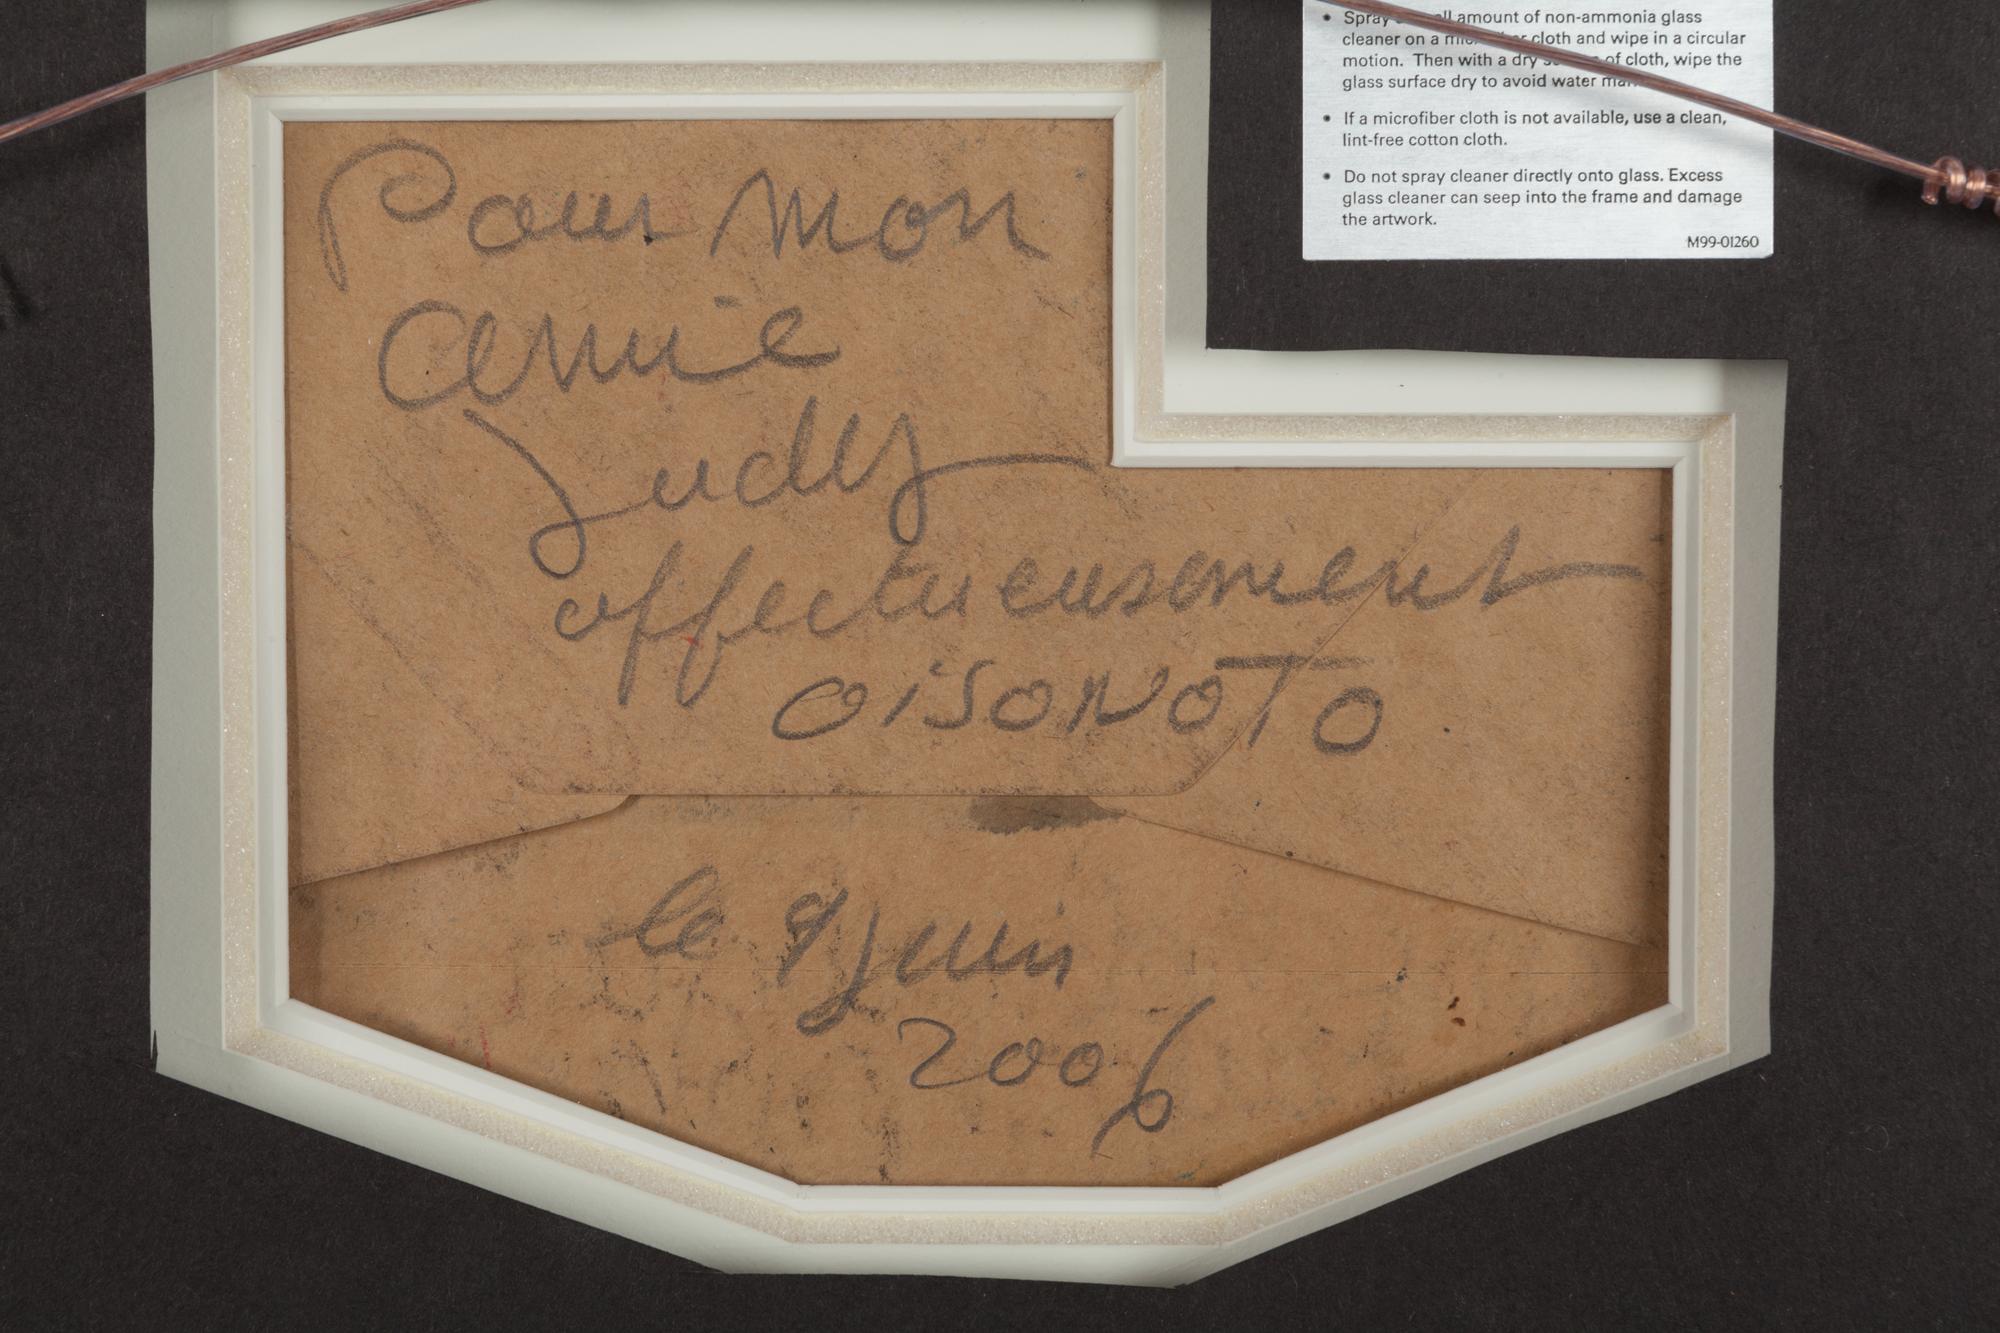 Pour mon
amie
Judy
affectueusement
OISONOTO
le 9 juin
2006
• Spray small amount of non-ammonia glass
cleaner on a microfiber cloth and wipe in a circular
motion. Then with a dry of cloth, wipe the
glass surface dry to avoid water
• If a microfiber cloth is not available, use a clean,
lint-free cotton cloth.
• Do not spray cleaner directly onto glass. Excess
glass cleaner can seep into the frame and damage
the artwork.
M99-01260